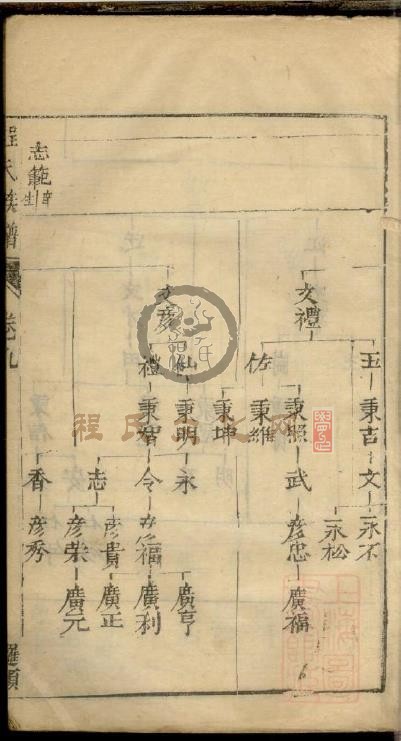 文禮
玉
秉吉
文
永
永松
佐
秉照
武
彦忠
廣福
秉維
秉坤
文彦
仙
秉明
永
廣亨
禮
秉智
令
彦福
廣利
志
彦貴
廣正
彦榮
廣元
香
彦秀
志範
程氏族譜
卷九
程氏